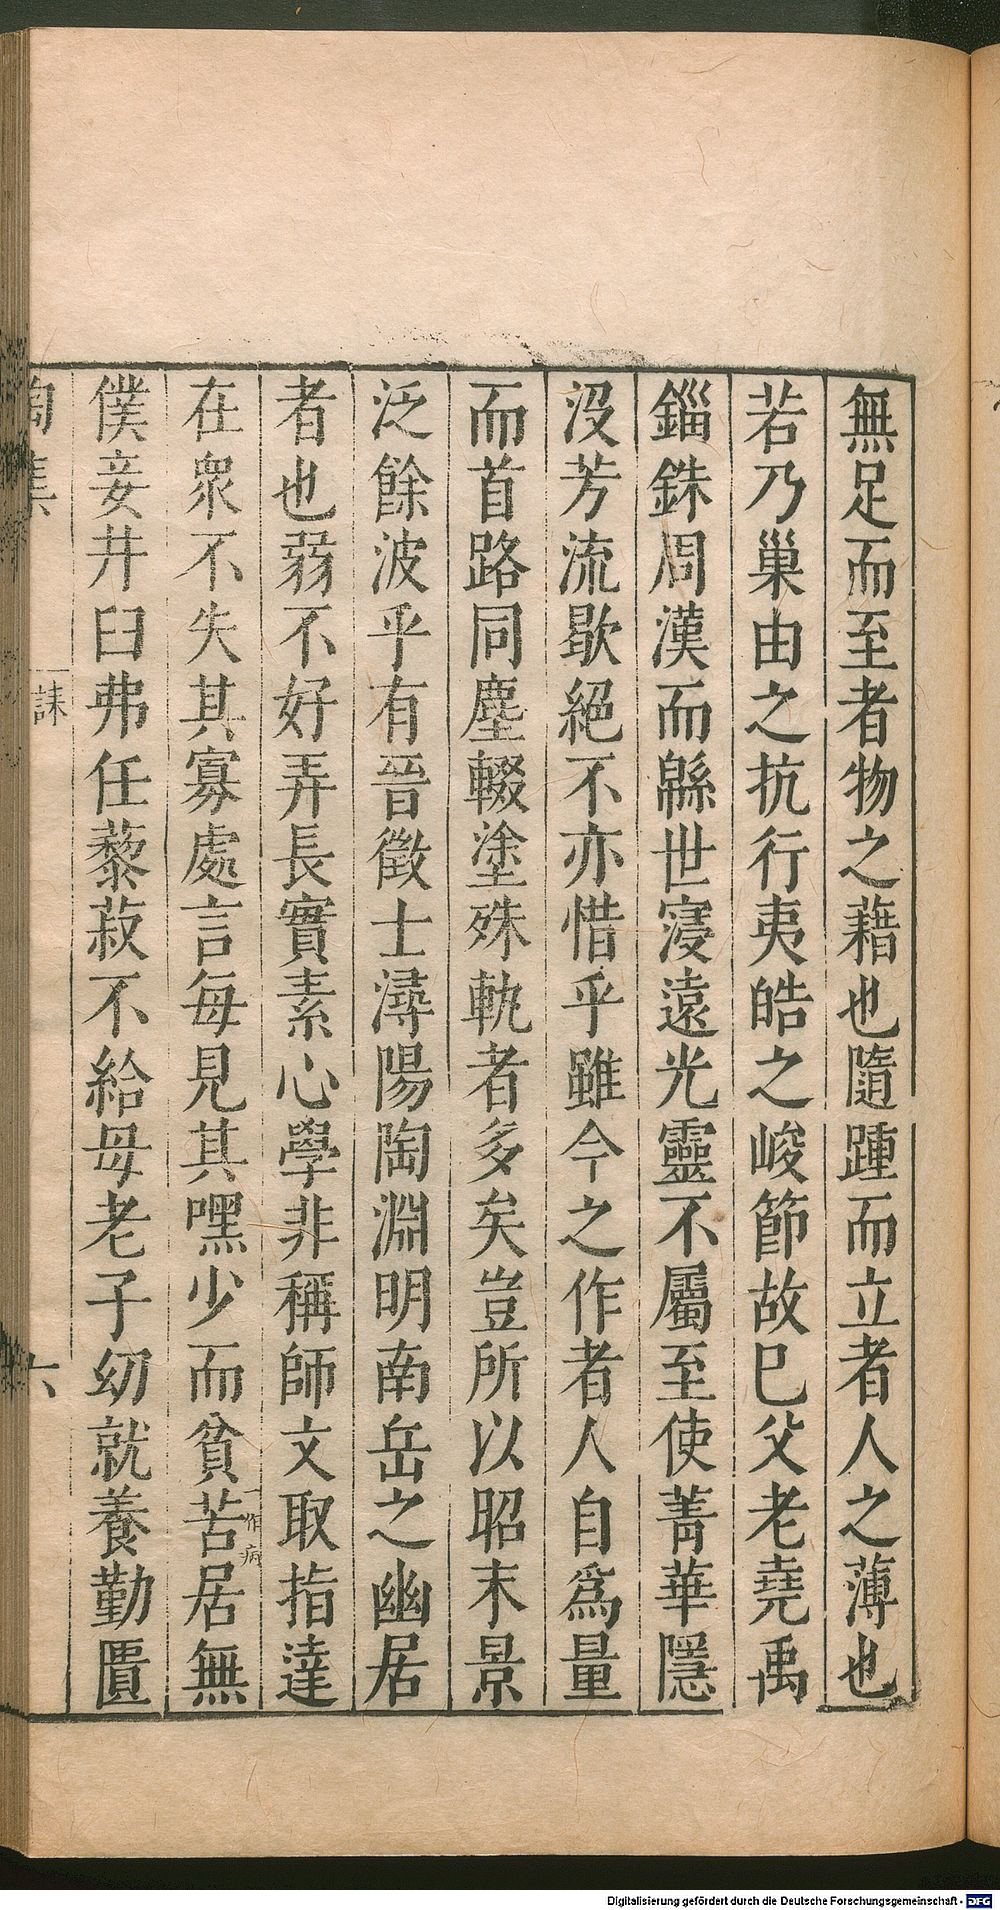 無足而至者物之藉也隨踵而立者人之薄也
若乃巢由之抗行夷皓之峻節故巳父老堯禹
錙銖周漢而緜世寖遠光靈不屬至使菁華隱
沒芳流歇絕不亦惜乎雖今之作者人自爲量
而首路同塵輟塗殊軌者多矣豈所以昭末景
泛餘波乎有晉徵士潯陽陶淵明南岳之幽居
者也弱不好弄長實素心學非稱師文取指達
在衆不失其寡處言每見其嘿少而貧苦一作病居無
僕妾井臼弗任藜菽不給母老子幼就養勤匱
陶集 誄 六
Digitalisierung gefördert durch die Deutsche Forschungsgemeinschaft - DFG